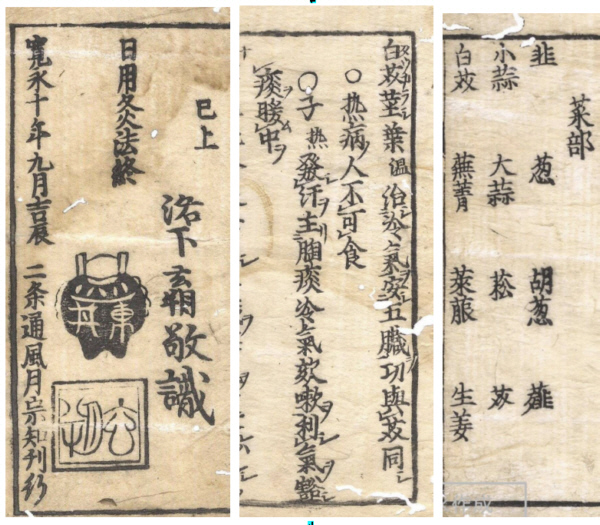 菜部
韭 葱 胡葱 薤
小蒜 大蒜 菘 芥
白芥 蕪菁 萊菔 生姜
白芥莖葉 温 治冷氣安五臓功與芥同
○热病人不可食
○子 热 發汗主胸痰冷上氣欬嗽利氣豁
痰暖中
已上
洛下玄朔敬識
東井
日用灸法終
寛永十年九月吉辰 二条通風月宗知刊行